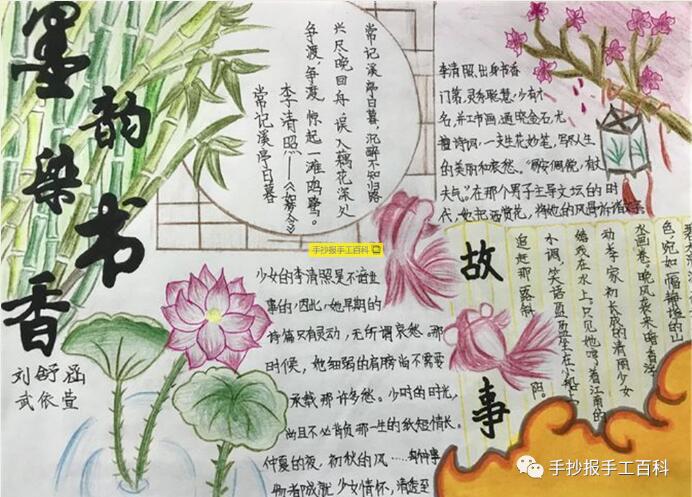 墨韵染书香
刘舒涵
武依萱
常记溪亭日暮,沉醉不知归路
兴尽晚回舟,误入藕花深处
争渡,争渡,惊起一滩鸥鹭。
李清照——《如梦令》
常记溪亭日暮
李清照,出身书香
门第,灵秀聪慧,少有才
名,并工书画,通晓金石,尤
擅诗词,一支生花妙笔,写尽人生
的美丽和哀愁。
在那个男子主导文坛的时
手抄报手工百科
少女的李清照是不谙世
事的,因此,她早期的
诗篇只有灵动,无所谓哀愁,那
时候,她细弱的肩膀尚不需要
承载那许多愁。少时的时光,
尚且不必背负那一生的愁短情长。
仲夏的夜,初秋的风……每件事
物都成就少女情怀,清透至
故事
色,宛如一幅静谧的山
水画卷,晚风袭来,暗香浮
动,李家初长成的清丽少女
嬉戏在水上。只见她哼着江南的
小调,笑语盈盈坐在小船上
追赶那落斜
阳。
手抄报手工百科